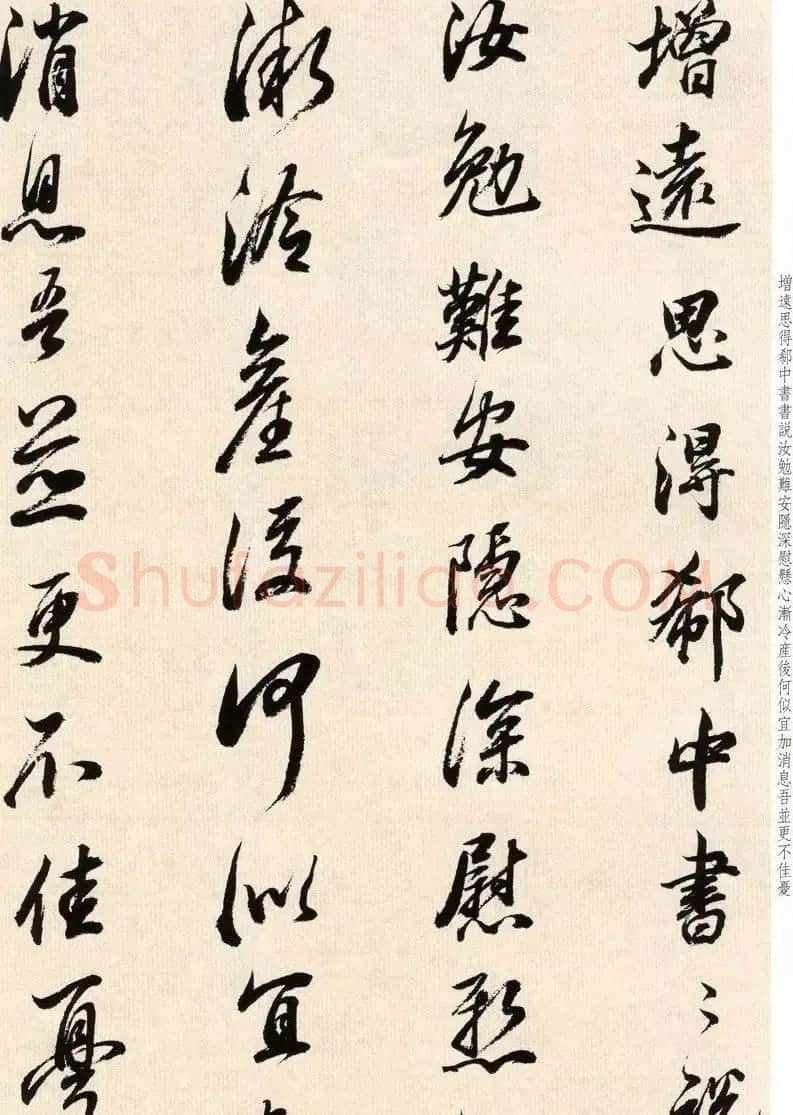 增遠思得郗中書〻説
汝勉難安隱深慰懸
漸冷産後何似宜
消息吾並更不佳憂
增遠思得郗中書書説汝勉難安隱深慰懸心漸冷産後何似宜加消息吾並更不佳憂
Shufaziliao.COM